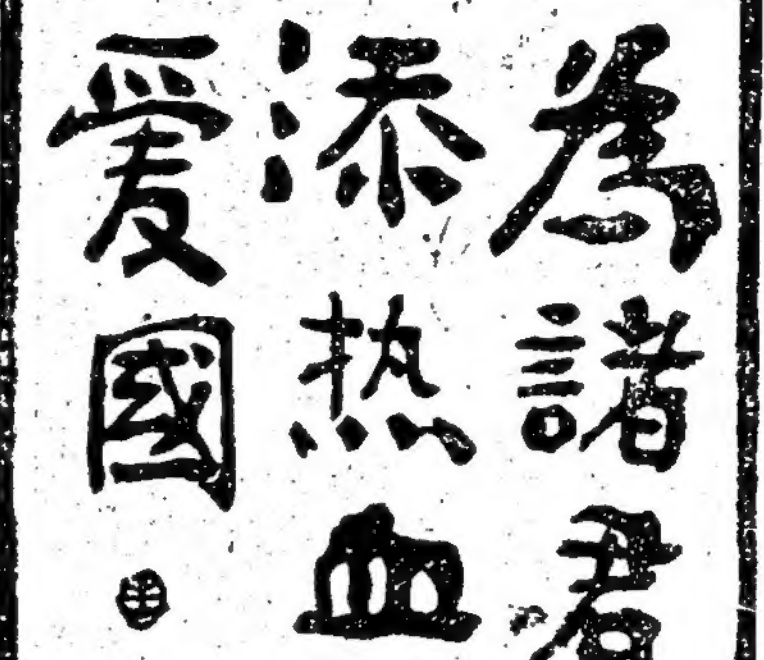 為諸君
添热血
爱國